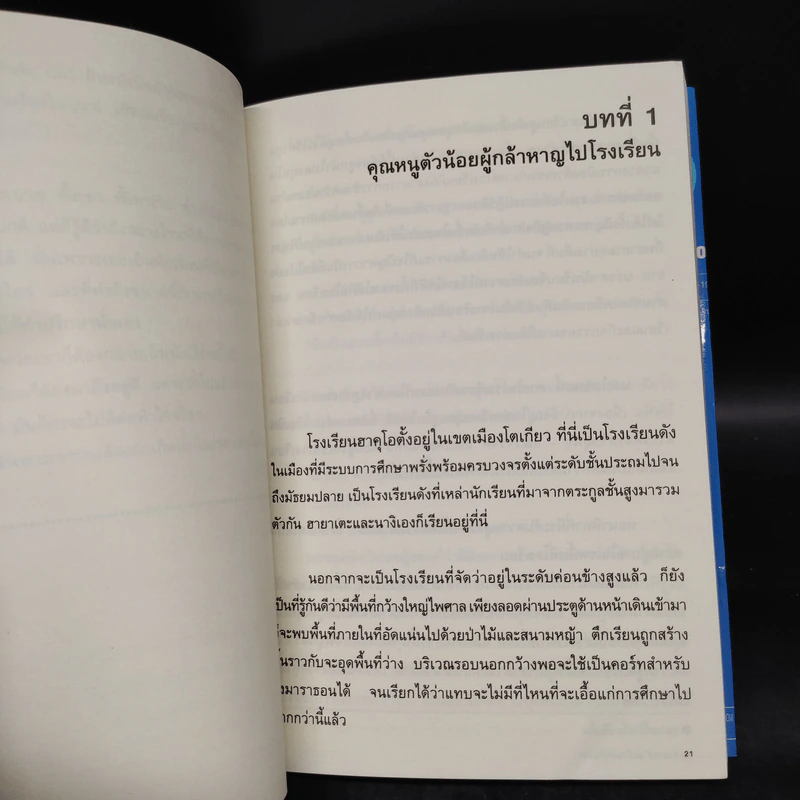 บทที่ 1
คุณหนูตัวน้อยผู้กล้าหาญไปโรงเรียน
โรงเรียนฮาคุโอตั้งอยู่ในเขตเมืองโตเกียว ที่นี่เป็นโรงเรียนดัง
ในเมืองที่มีระบบการศึกษาพรั่งพร้อมครบวงจรตั้งแต่ระดับชั้นประถมไปจน
ถึงมัธยมปลาย เป็นโรงเรียนดังที่เหล่านักเรียนที่มาจากตระกูลชั้นสูงมารวม
ตัวกัน ฮายาเตะและนางิเองก็เรียนอยู่ที่นี่
นอกจากจะเป็นโรงเรียนที่จัดว่าอยู่ในระดับค่อนข้างสูงแล้ว ก็ยัง
เป็นที่รู้กันดีว่ามีพื้นที่กว้างใหญ่ไพศาล เพียงลอดผ่านประตูด้านหน้าเดินเข้ามา
ก็จะพบพื้นที่ภายในที่อัดแน่นไปด้วยป่าไม้และสนามหญ้า ตึกเรียนถูกสร้าง
ขึ้นราวกับจะอุดพื้นที่ว่าง บริเวณรอบนอกกว้างพอจะใช้เป็นคอร์ทสำหรับ
วิ่งมาราธอนได้ จนเรียกได้ว่าแทบจะไม่มีที่ไหนที่จะเอื้อแก่การศึกษาไป
มากกว่านี้แล้ว
21